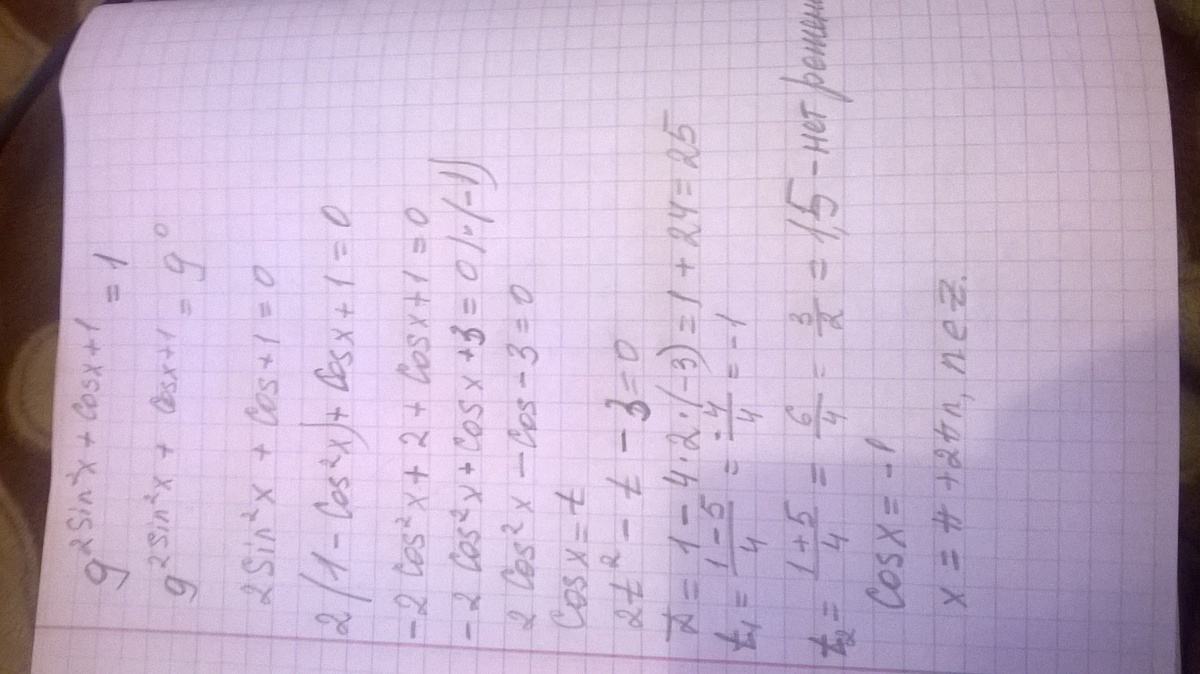 9^(2sin²x + cosx+1) = 1
9^(2sin²x + cosx+1) = 9⁰
2sin²x + cos+1=0
2(1-cos²x)+cosx+1=0
-2cos²x+2+cosx+1=0
-2cos²x+cosx+3=0/·(-1)
2cos²x-cos-3=0
cosx=t
2t²-t-3=0
D=1-4·2·(-3)=1+24=25
t₁=(1-5)/4=-4/4=-1
t₂=(1+5)/4=6/4=3/2=1,5-нет
cosx=-1
x=π+2πn, n∈Z.